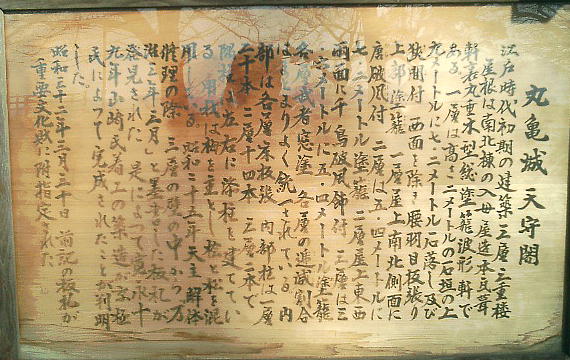 丸亀城 天守閣
江戸時代初期の建築 三層三重楼
屋根は南北棟の入母屋造本瓦葺
軒裏丸垂木型総塗籠波形軒で
ある。一層は高さ二メートルの石垣の上
九メートルに七・二メートル石落し及び
狭間付 西面を除き腰羽目板張り
上部塗籠 一層屋上南北側面に
唐破風付 二層は五・四メートルに
七・二メートル塗籠 二層屋上東西
両面に千鳥破風飾付 三層は三
・六メートルに五・四メートル塗籠
各層武者窓塗 各層の逓減割合
はまとまりよく統一されている。内
部は各層床板張 内部柱は一層
二十本 二層十四本 三層二本で
隅柱は左右に添柱を建ててい
る 用材は栂を主とし 桧と松を混
用している 昭和二十五年 天主解体
修理の際 三層の壁の中から万
治三年三月と墨書した板札が
発見された 是によって寛永十
九年山崎氏着工の築造が京極
氏によって完成されたことが判明
した。
昭和三十二年三月三十日 前記の板札が
重要文化財に附指定された